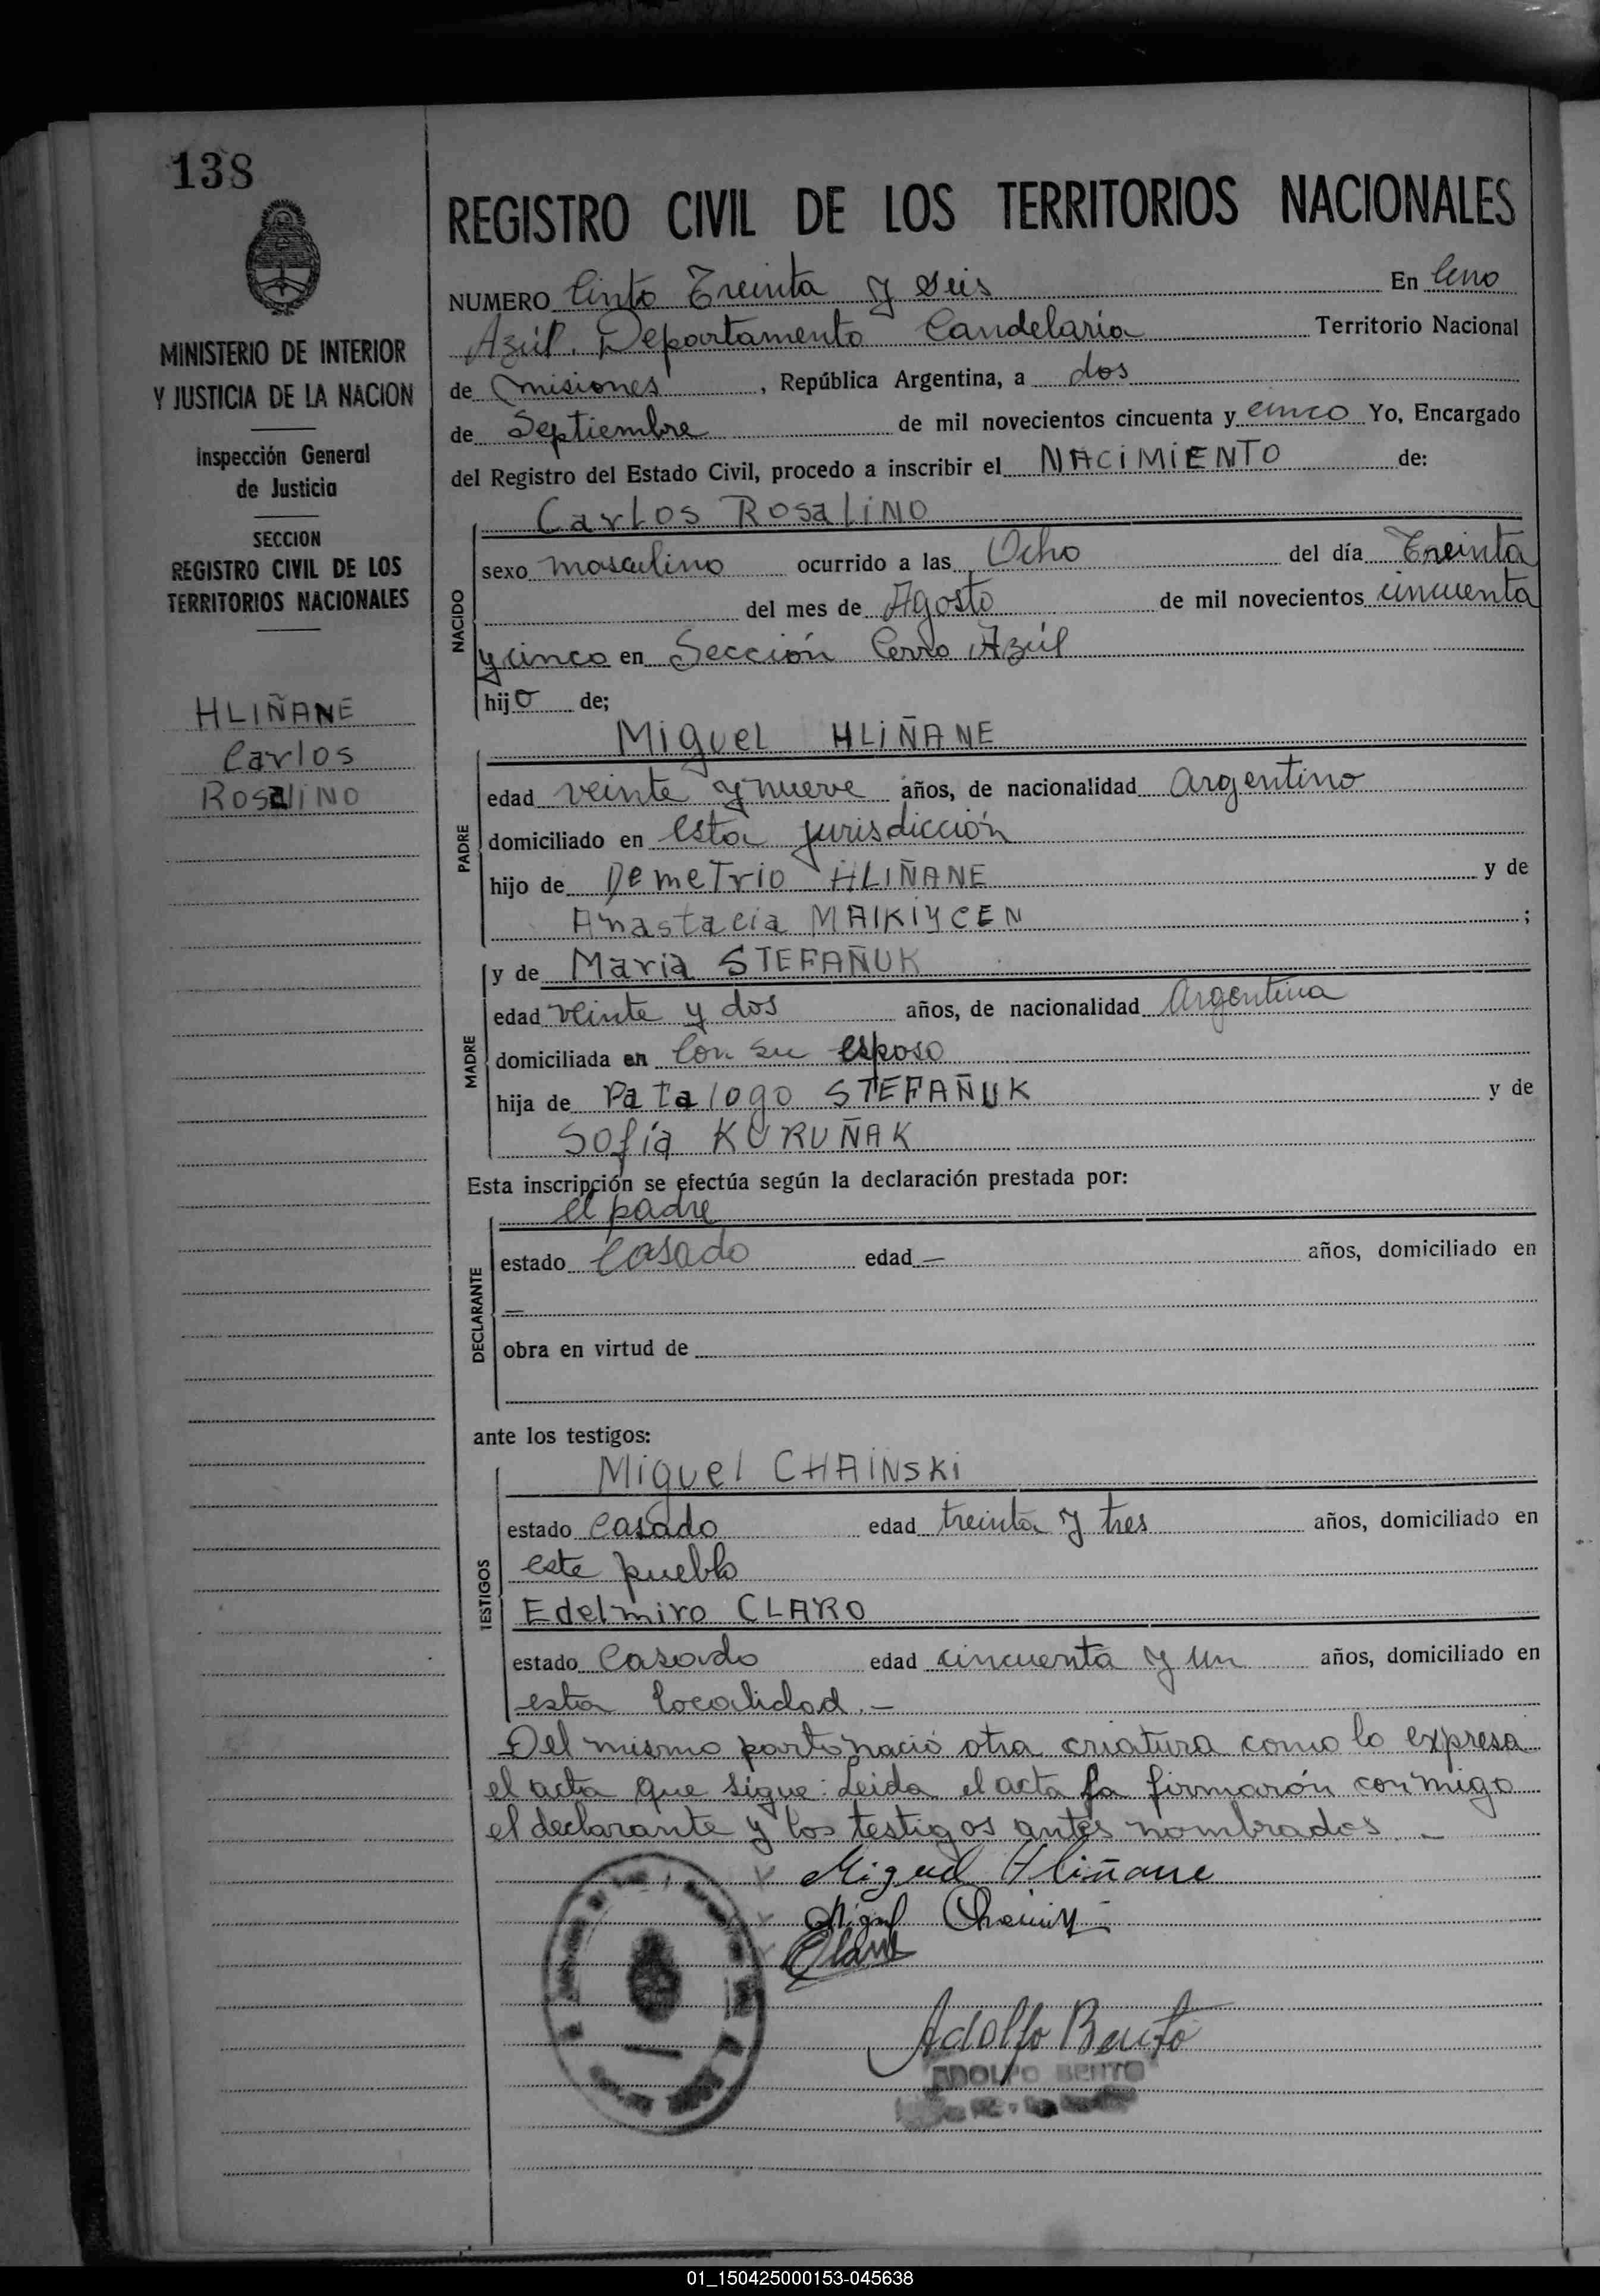 138
MINISTERIO DE INTERIOR
Y JUSTICIA DE LA NACION
Inspección General
de Justicia
SECCION
REGISTRO CIVIL DE LOS
TERRITORIOS NACIONALES
HLIÑANE
Carlos
Rosalino
REGISTRO CIVIL DE LOS TERRITORIOS NACIONALES
NUMERO Cinto Treinta y Seis En Cerro
Azúl. Departamento Candelaria Territorio Nacional
de Misiones, República Argentina, a dos
de Septiembre de mil novecientos cincuenta y cinco Yo, Encargado
del Registro del Estado Civil, procedo a inscribir el NACIMIENTO de:
Carlos Rosalino
NACIDO
sexo masculino ocurrido a las Ocho del día Treinta
del mes de Agosto de mil novecientos cincuenta
y cinco en Sección Cerro Azúl
hijo de;
Miguel HLIÑANE
PADRE
edad veinte y nueve años, de nacionalidad Argentino
domiciliado en esta jurisdicción
hijo de Demetrio HLIÑANE y de
Anastacia MAIKIYCEN ;
y de Maria STEFAÑUK
MADRE
edad veinte y dos años, de nacionalidad Argentina
domiciliada en Con su esposo
hija de Patalogo STEFAÑUK y de
Sofía KURUÑAK
Esta inscripción se efectúa según la declaración prestada por:
el padre
DECLARANTE
estado Casado edad — años, domiciliado en
—
obra en virtud de
ante los testigos:
Miguel CHAINSKI
TESTIGOS
estado Casado edad treinta y tres años, domiciliado en
este pueblo
Edelmiro CLARO
estado Casado edad cincuenta y un años, domiciliado en
esta localidad.—
Del mismo parto nació otra criatura como lo expresa
el acta que sigue: Leida el acta la firmarón conmigo
el declarante y los testigos antes nombrados. —
Miguel Hliñane
Miguel
Claro
Adolfo Bento
ADOLFO BENTO
01_150425000153-045638